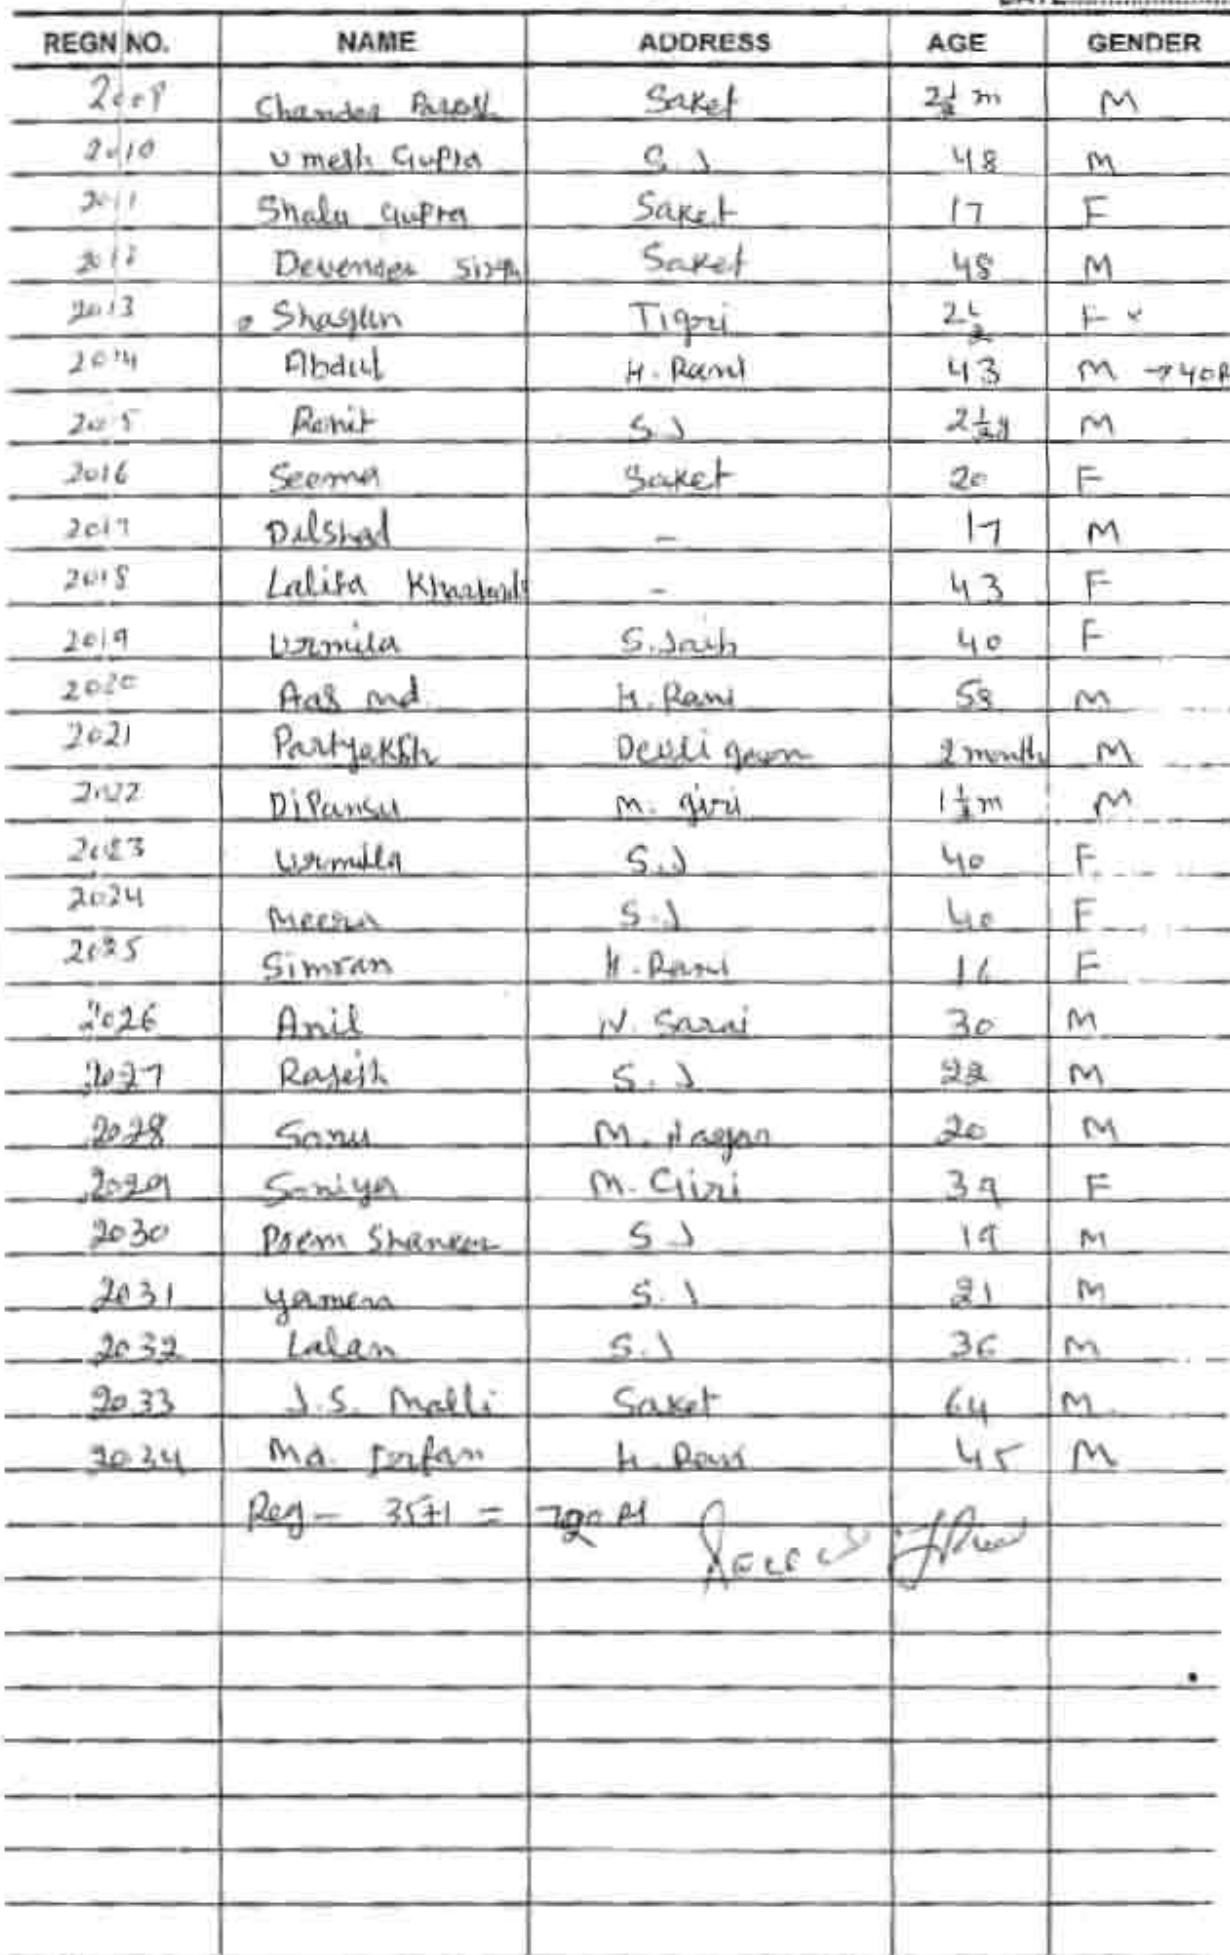 REGN NO. NAME ADDRESS AGE GENDER
2009 Chander Saket 2½ m M
2010 Umesh Gupta S.J 48 M
2011 Shalu Gupta Saket 17 F
2012 Devender Singh Saket 48 M
2013 Shagun Tigri 2½ F
2014 Abdul H. Rani 43 M →40R
2015 Ronit S.J 2½y M
2016 Seema Saket 20 F
2017 Dilshad - 17 M
2018 Lalita - 43 F
2019 Urmila S.Jaib 40 F
2020 Aas md. H. Rani 58 M
2021 Partyaksh Devli gaon 2 month M
2022 Dipansu m. giri 1½m M
2023 Urmila S.J 40 F
2024 Meera S.J 40 F
2025 Simran H. Rani 16 F
2026 Anil N. Sarai 30 M
2027 Rajesh S.J 22 M
2028 Sonu M. Nagar 20 M
2029 Soniya M. Giri 39 F
2030 Prem Shanker S.J 19 M
2031 Yamen S.J 21 M
2032 Lalan S.J 36 M
2033 J.S. Malli Saket 64 M
2034 Md. Irfan H. Rani 45 M
Reg - 35+1 =